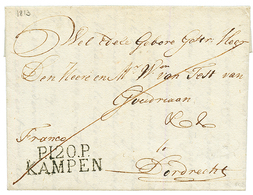 1813
Wel Edele Gebore Gestr: Heer
Den Heere en Mr. Wm van Test van
Goudriaan
&c &c
Franco te
P.120.P. Dordrecht
KAMPEN